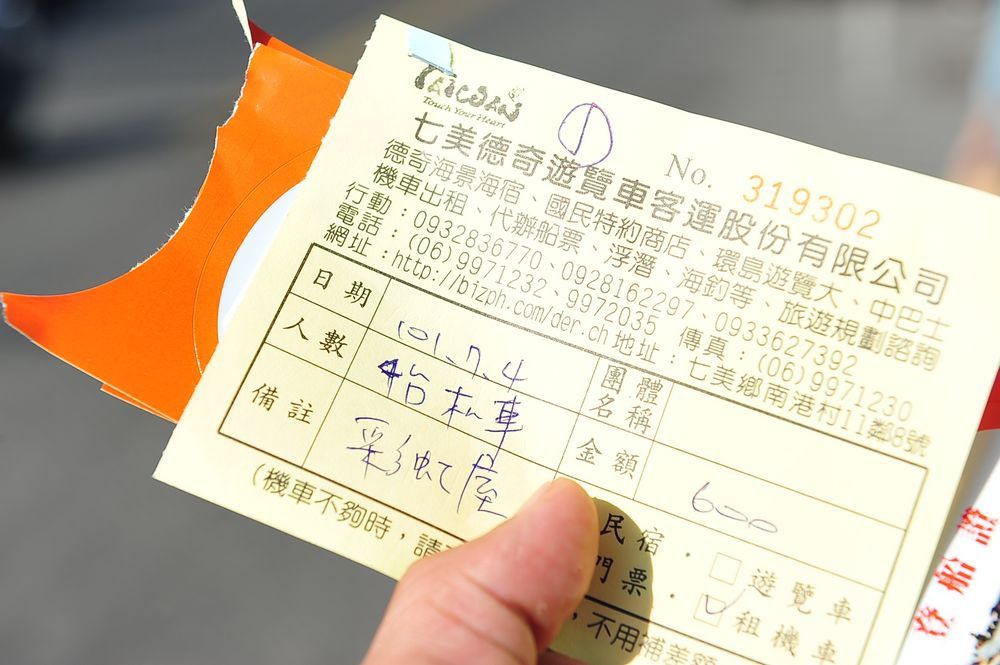 TAIWAN
Touch Your Heart
No. 319302
七美德奇遊覽車客運股份有限公司
德奇海景海宿、國民特約商店、環島遊覽大、中巴士
機車出租、代辦船票、浮潛、海釣等、旅遊規劃諮詢
行動:0932836770、0928162297、0933627392
電話:(06)9971232、9972035 傳真:(06)9971230
網址:http://bizph.com/der.ch 地址:七美鄉南港村11鄰8號
日期 101.7.4 團體名稱
人數 4台机車 金額 600
備註 彩虹座 民宿. 遊覽車
門票. 租機車
(機車不夠時,請
,不用補差額
登船證